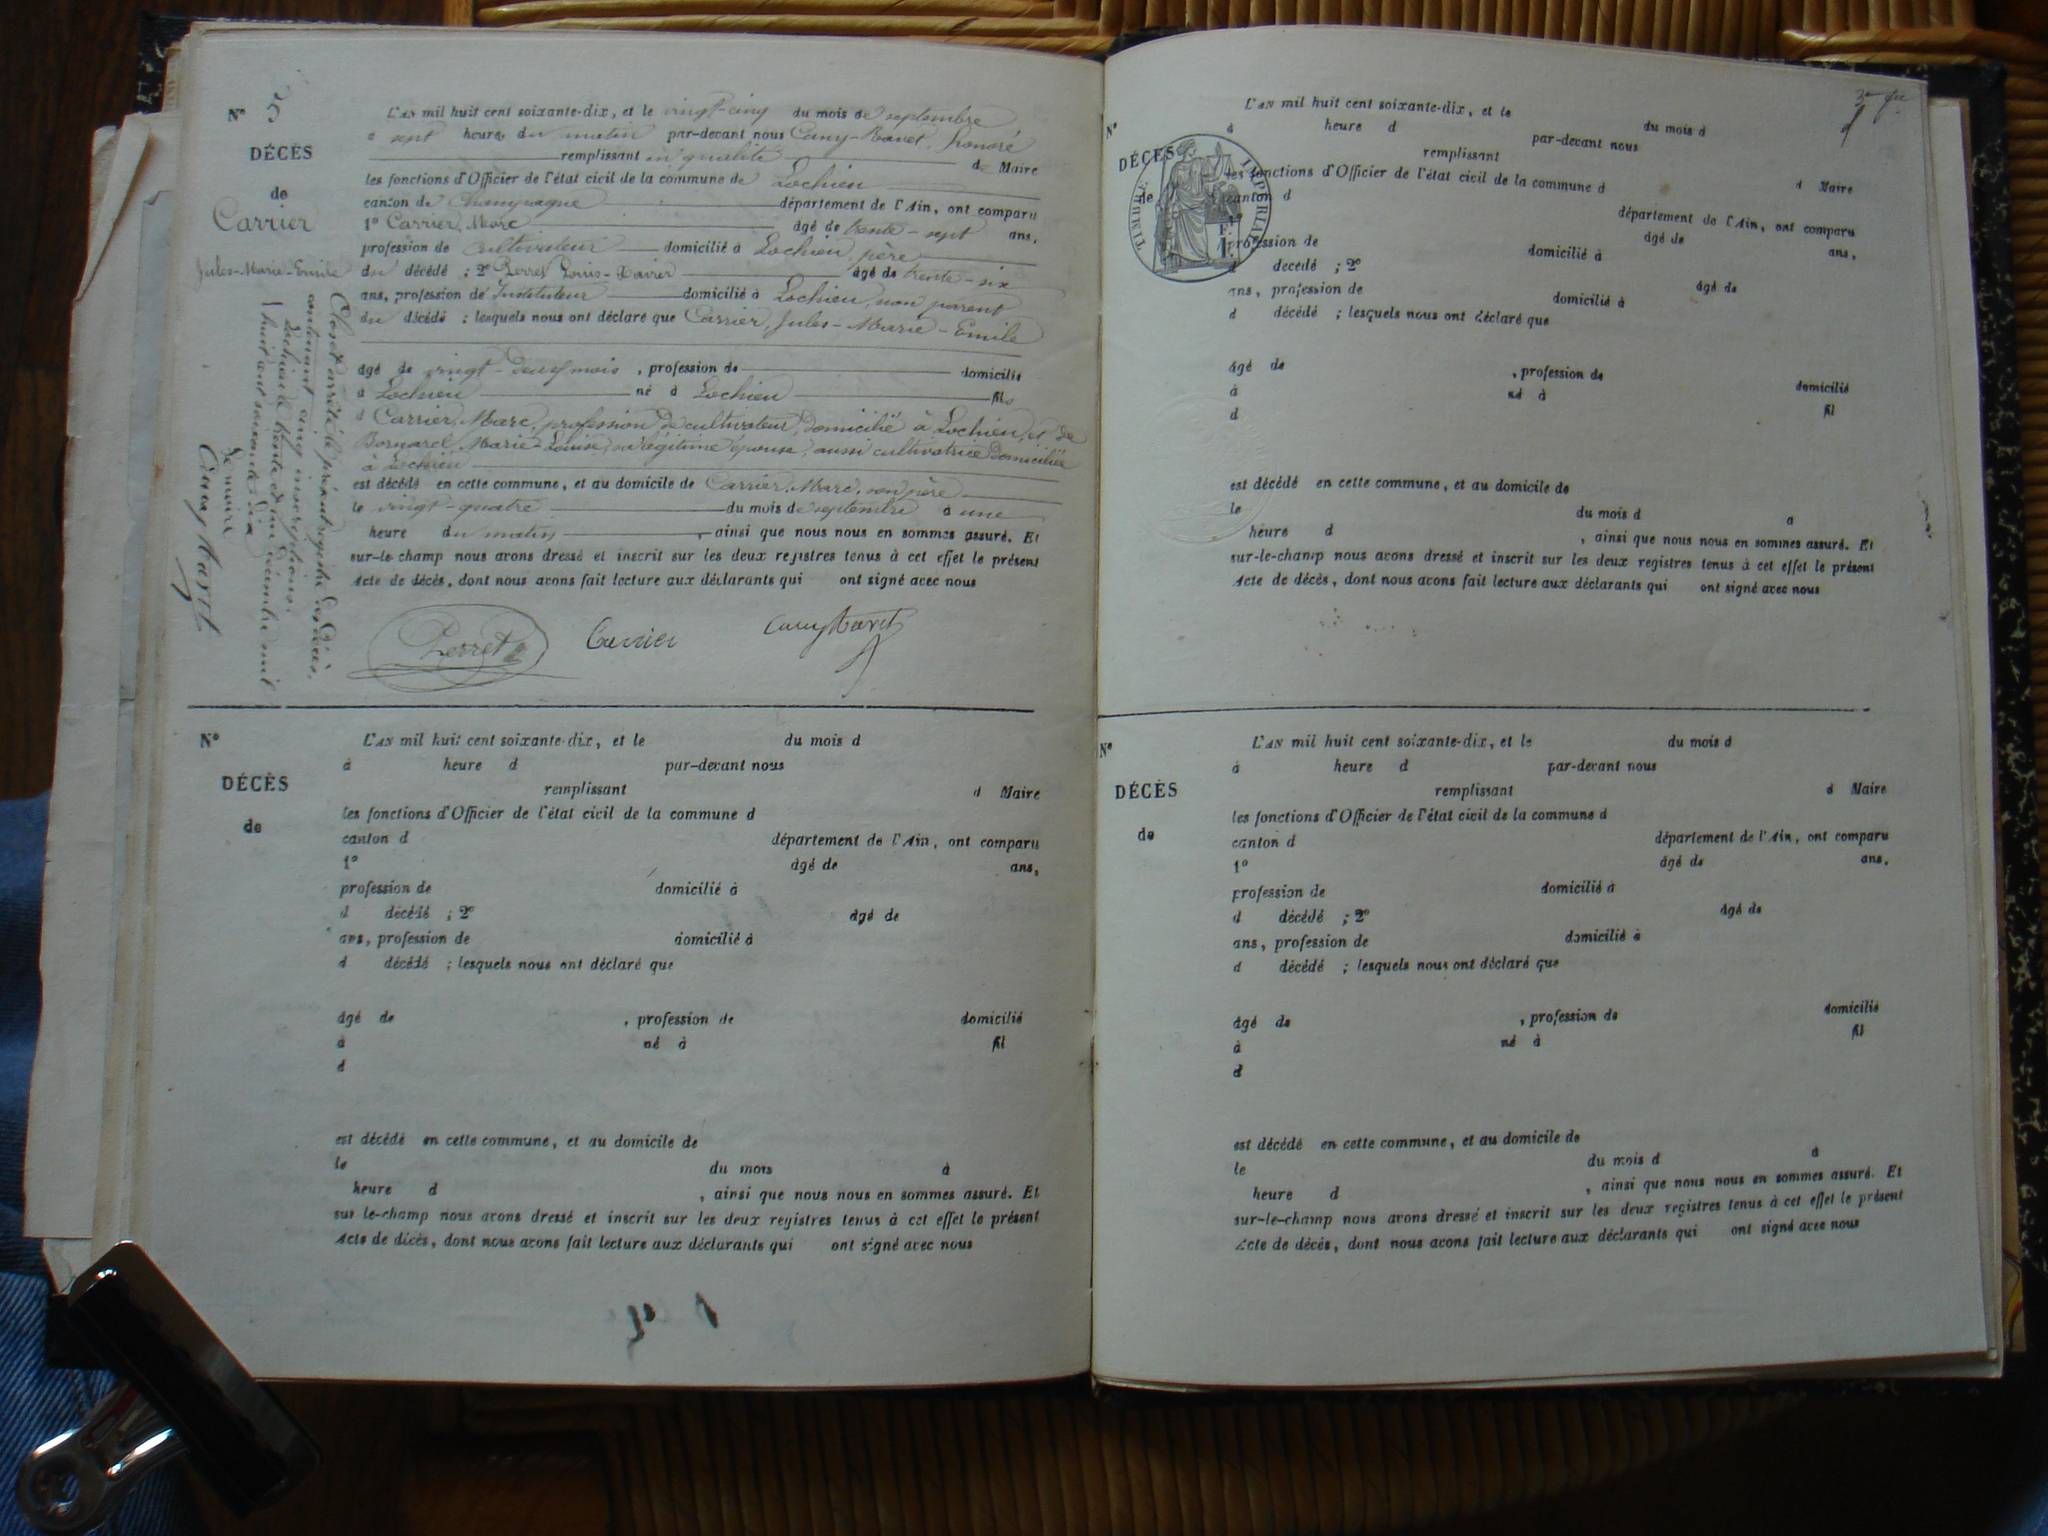 N° 5
DÉCÈS
de
Carrier
Jules-Marie-Emile
L'AN mil huit cent soixante-dix, et le vingt-cinq du mois de septembre
à sept heures du matin par-devant nous Cany-Ravet, honoré
remplissant en qualité de Maire
les fonctions d'Officier de l'état civil de la commune de Lochieu
canton de Champagne département de l'Ain, ont comparu
1° Carrier, Marc âgé de trente-sept ans,
profession de cultivateur domicilié à Lochieu, père
du décédé ; 2° Perret Louis-Xavier âgé de trente-six
ans, profession de Instituteur domicilié à Lochieu, non parent
du décédé ; lesquels nous ont déclaré que Carrier, Jules-Marie-Emile
âgé de vingt-deux mois , profession de domicilié
à Lochieu né à Lochieu fils
d Carrier, Marc, profession de cultivateur, domicilié à Lochieu, et de
Bornarel, Marie-Louise, sa légitime épouse, aussi cultivatrice domiciliée
à Lochieu
est décédé en cette commune, et au domicile de Carrier, Marc, son père
le vingt-quatre du mois de septembre à une
heure du matin , ainsi que nous nous en sommes assuré. Et
sur-le-champ nous avons dressé et inscrit sur les deux registres tenus à cet effet le présent
Acte de décès, dont nous avons fait lecture aux déclarants qui ont signé avec nous
Perret Carrier Cany Ravet
Clos et arrêté le présent registre des décès,
contenant cinq inscriptions.
Lochieu le trente et un décembre mil
huit cent soixante-dix
Le maire
Cany Ravet
N°
DÉCÈS
de
L'AN mil huit cent soixante-dix, et le du mois d
à heure d par-devant nous
remplissant d Maire
les fonctions d'Officier de l'état civil de la commune d
canton d département de l'Ain, ont comparu
1° âgé de ans,
profession de domicilié à
d décédé ; 2° âgé de
ans, profession de domicilié à
d décédé ; lesquels nous ont déclaré que
âgé de , profession de domicilié
à né à fil
d
est décédé en cette commune, et au domicile de
le du mois à
heure d , ainsi que nous nous en sommes assuré. Et
sur-le-champ nous avons dressé et inscrit sur les deux registres tenus à cet effet le présent
Acte de décès, dont nous avons fait lecture aux déclarants qui ont signé avec nous
N°
DÉCÈS
de
TIMBRE IMPÉRIAL
L'AN mil huit cent soixante-dix, et le du mois d
d heure d par-devant nous
remplissant d Maire
les fonctions d'Officier de l'état civil de la commune d
canton d département de l'Ain, ont comparu
1° âgé de ans,
profession de domicilié à
d décédé ; 2° âgé de
ans, profession de domicilié à
d décédé ; lesquels nous ont déclaré que
âgé de , profession de domicilié
à né à fil
d
est décédé en cette commune, et au domicile de
le du mois d à
heure d , ainsi que nous nous en sommes assuré. Et
sur-le-champ nous avons dressé et inscrit sur les deux registres tenus à cet effet le présent
Acte de décès, dont nous avons fait lecture aux déclarants qui ont signé avec nous
N°
DÉCÈS
de
L'AN mil huit cent soixante-dix, et le du mois d
à heure d par-devant nous
remplissant d Maire
les fonctions d'Officier de l'état civil de la commune d
canton d département de l'Ain, ont comparu
1° âgé de ans,
profession de domicilié à
d décédé ; 2° âgé de
ans, profession de domicilié à
d décédé ; lesquels nous ont déclaré que
âgé de , profession de domicilié
à né à fil
d
est décédé en cette commune, et au domicile de
le du mois d à
heure d , ainsi que nous nous en sommes assuré. Et
sur-le-champ nous avons dressé et inscrit sur les deux registres tenus à cet effet le présent
Acte de décès, dont nous avons fait lecture aux déclarants qui ont signé avec nous